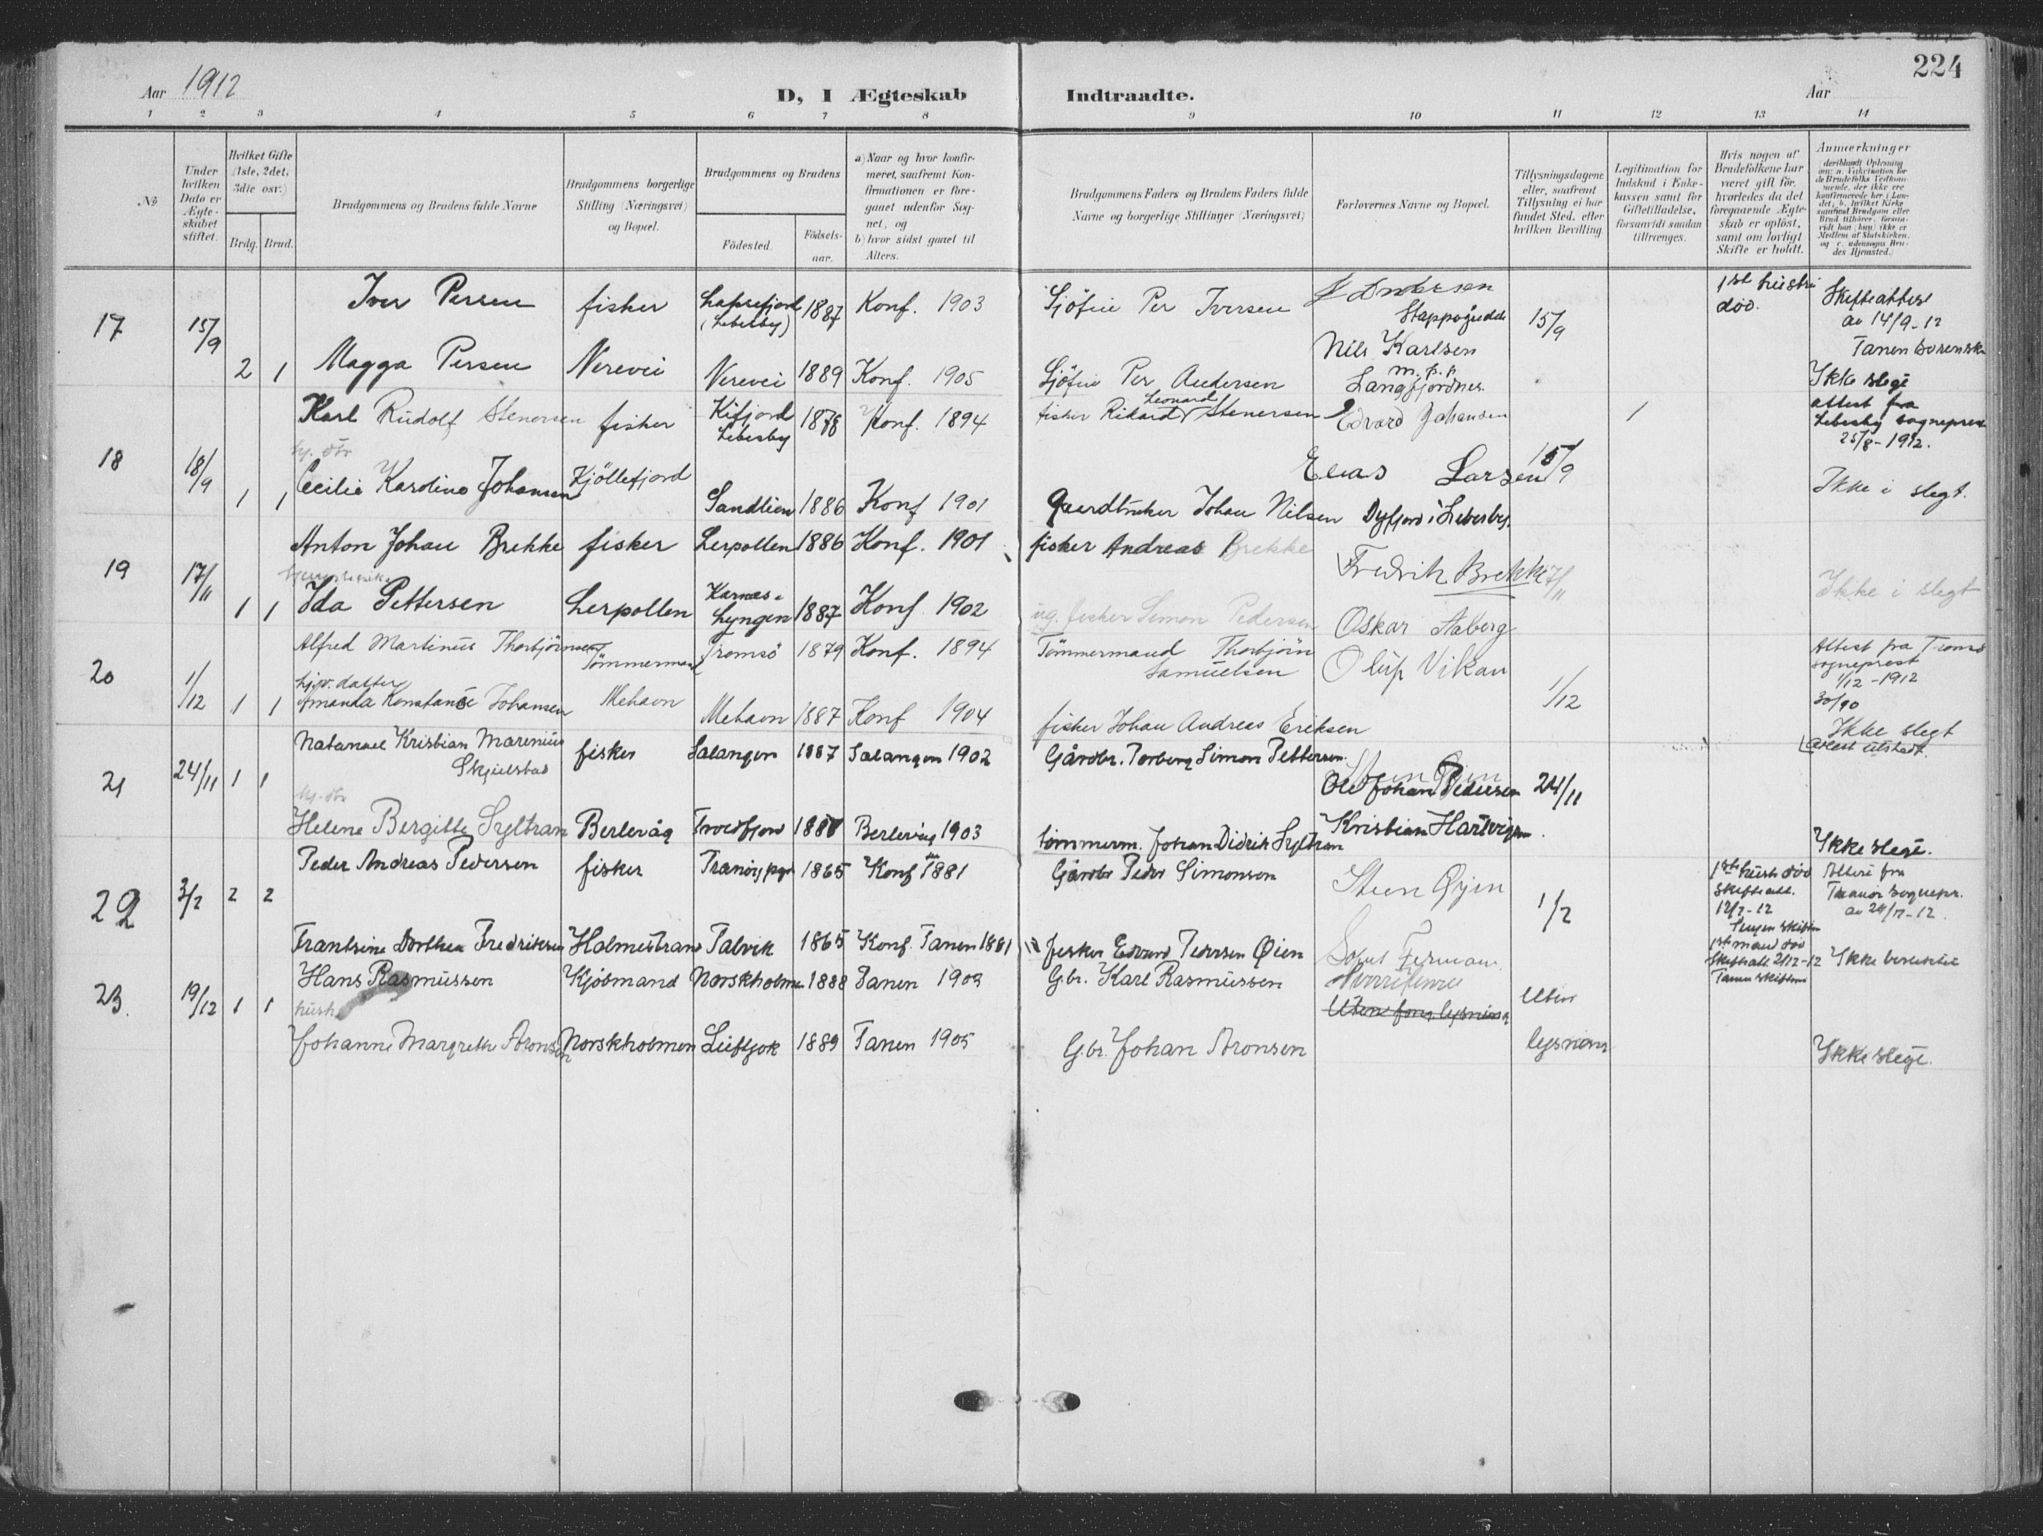 224
Aar 1912
D, I Ægteskab Indtraadte.
Aar
1 2 3 4 5 6 7 8 9 10 11 12 13 14
№
Under hvilken Dato er Ægteskabet stiftet.
Hvilket Gifte (1ste, 2det, 3die osv.)
Brdg. Brud.
Brudgommens og Brudens fulde Navne
Brudgommens borgerlige Stilling (Næringsvei) og Bopæl.
Brudgommens og Brudens
Fødested. Fødselsaar.
a) Naar og hvor konfirmeret, saafremt Konfirmationen er foregaaet udenfor Sognet, og
b) hvor sidst gaaet til Alters.
Brudgommens Faders og Brudens Faders fulde Navne og borgerlige Stillinger (Næringsvei)
Forlovernes Navne og Bopæl.
Tillysningsdagene eller, saafremt Tillysning ei har fundet Sted, efter hvilken Bevilling
Legitimation for Indskud i Enkekassen samt for Giftetilladelse, forsaavidt saadan tiltrænges.
Hvis nogen af Brudefolkene har været gift før, hvorledes da det foregaaende Ægteskab er opløst, samt om lovligt Skifte er holdt.
Anmærkninger
17 15/9 Iver Persen fisker Laksefjord (Lebesby) 1887 Konf. 1903 Sjöfin Per Iversen Andersen Stappogiedde 15/9 1st hustru død. Skifteattest av 14/9-12 Tanen sorenskr
2 1 Magga Persen Nerevei Nerevei 1889 Konf. 1905 Sjöfin Per Andersen Nils Karlsen m.p.p Langfjordnes Ikke slegt
18 18/9 Karl Rudolf Stenersen fisker Kifjord Lebesby 1878 Konf. 1894 fisker Rikard Leonard Stenersen Edvard Johansen 1 15/9 attest fra Lebesby sogneprest 25/8-1912.
1 1 Cecilie Karoline Johansen Kjöllefjord Sandlien 1886 Konf 1901 Gaardbruker Johan Nilsen Elias Larsen Dyfjord i Lebesby. Ikke i slegt.
19 17/11 Anton Johan Brekke fisker Lerpollen 1886 Konf. 1901 fisker Andreas Brekke Fredrik Brekke 17/11
1 1 Ida Pettersen Lerpollen Karnes i Lyngen 1887 Konf. 1902 ug. fisker Simon Pedersen Oskar Aaberg Ikke i slegt
20 1/12 Alfred Martinus Thorbjörnsen Tömmermand Tromsö 1879 Konf. 1894 Tömmermand Thorbjörn Samuelsen Oluf Vikan 1/12 Attest fra Tromsö sogneprest 1/12-1912
1 1 hjv. datter Amanda Konstance Johansen Mehavn Mehavn 1887 Konf 1904 fisker Johan Andreas Eriksen 30/90 Ikke slegt
21 24/11 1 1 Natanael Kristian Marenius Skjielstad fisker Salangen 1887 Salangen 1902 Gårdbr. Torberg Simon Pettersen Ole Johan Pedersen 24/11 attest utstedt.
Helene Bergitte Syltran Berlevåg 1887 Berlevåg 1903 tömmerm. Johan Didrik Syltran Kristian Hartvigsen Ikke slegt.
22 3/2 2 2 Peder Andreas Pedersen fisker Tranöy pgd 1865 Konf 1881 Gårdbr Peder Simonsen Steen Øyen 1/2 1ste hustr død skifteatt. 12/7-12 Attest fra Tranöi sognepr.
Frantsine Dorthea Fredriksen Holmestrand Talvik 1865 Konf. Tanen 1881 fisker Edvard Pedersen Øien 1st mand død Skifteatt. 2/12-12 Tanen skifter Ikke beslektet
23. 19/12 1 1 Hans Rasmussen Kjöbmand Norskholmen 1888 Tanen 1903 G.br. Karl Rasmussen Uten
hush
Johanne Margrethe Aronsen Norskholmen Leistjok 1889 Tanen 1905 G.br. Johan Aronsen lysning Ikke slegt.